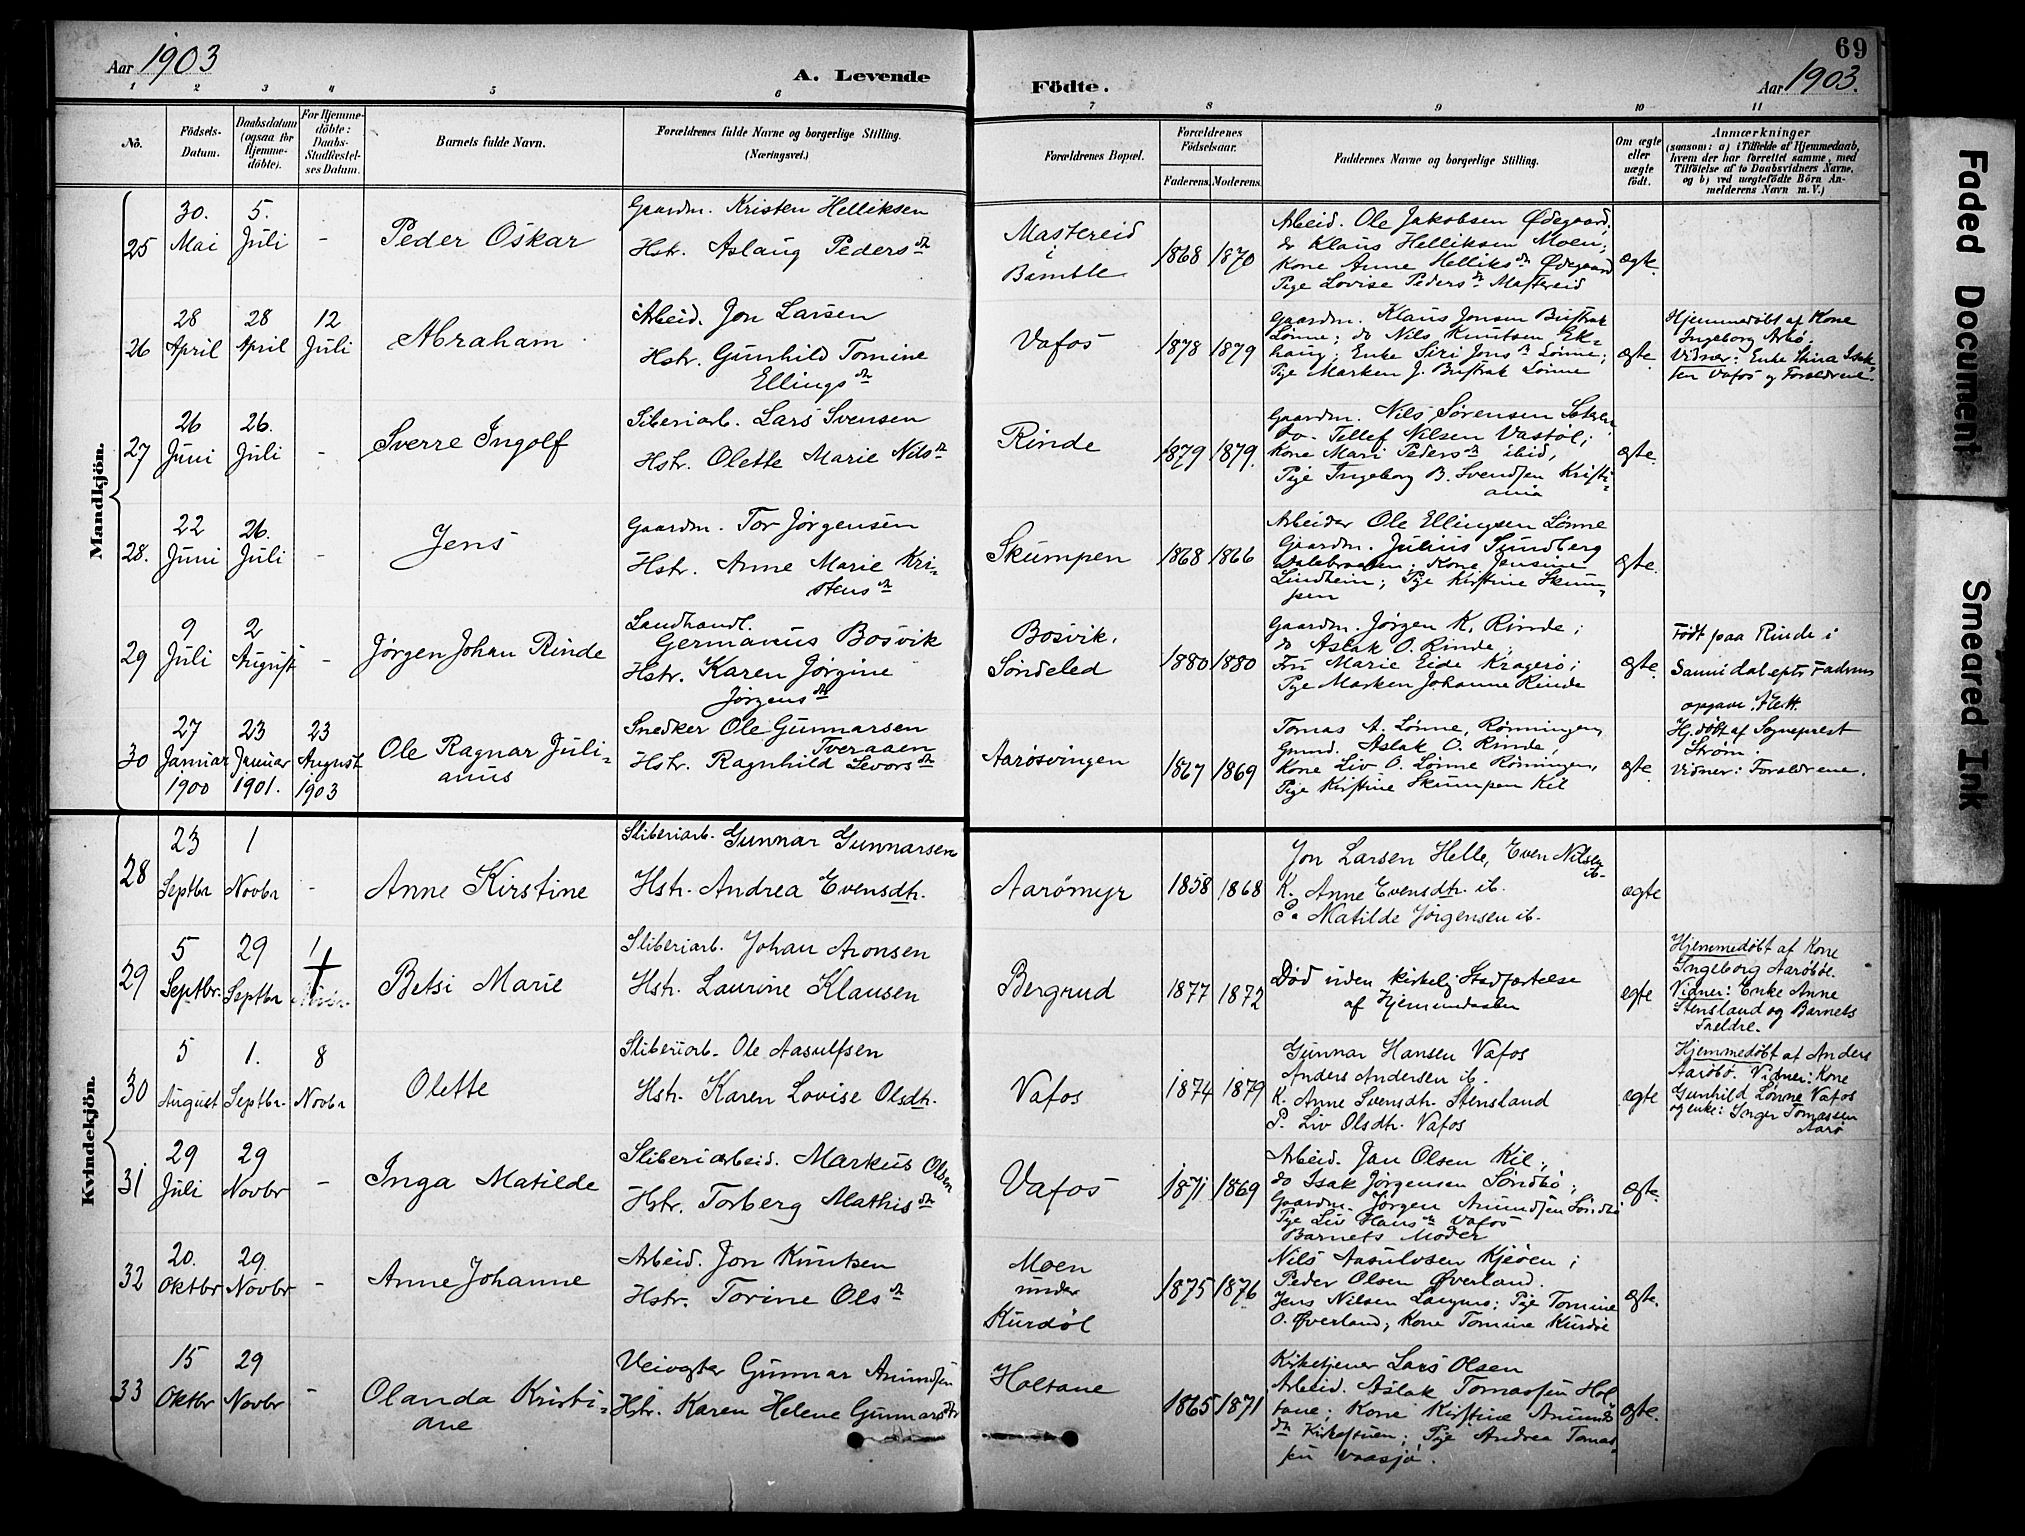 Aar 1903
A. Levende
Födte.
69
Aar 1903.
1 2 3 4 5 6 7 8 9 10 11
No.
Födsels-Datum.
Daabsdatum (ogsaa for Hjemme-döbte).
For Hjemme-döbte: Daabs-Stadfæstel-ses Datum.
Barnets fulde Navn.
Forældrenes fulde Navne og borgerlige Stilling.
(Næringsvei.)
Forældrenes Bopæl.
Forældrenes Födselsaar.
Faderens. Moderens.
Faddernes Navne og borgerlige Stilling.
Om ægte eller uægte födt.
Anmærkninger
(saasom: a) i Tilfælde af Hjemmedaab,
hvem der har forrettet samme, med
Tilföielse af to Daabsvidners Navne,
og b) ved uægtefödte Börn An-
melderens Navn m.V.)
Mandkjön.
25
30. Mai
5. Juli
-
Peder Oskar
Gaardm. Kristen Helliksen
Hstr. Aslaug Pedersdtr
Mastereid
i
Bamble
1868 1870
Arbeid. Ole Jakobsen Ødegaard,
do Klaus Helliksen Moen;
Kone Anne Helliksdtr Ødegaard
Pige Lovise Pedersdtr Mastereid
ægte.
26
28 April
28 April
12 Juli
Abraham
Arbeid. Jon Larsen
Hstr. Gunhild Tomine
Ellingsdtr
Vafos
1878 1879
Gaardm. Klaus Jonsen Bustrak
Lønne; do Nils Knutsen Ek-
haug; Enke Siri Jonsdtr Lønne;
Pige Marken J. Bustrak Lønne
ægte.
Hjemmedøbt af Kone
Ingeborg Arbø.
Vidner: Enke Stina Isak-
sen Vafos og Forældrene.
27
26 Juni
26. Juli
-
Sverre Ingolf
Sliberiarb. Lars Svensen
Hstr. Olette Marie Nilsdtr
Rinde
1879 1879.
Gaardm. Nils Sørensen
do. Tellef Nilsen Vastøl;
Kone Mari Pedersdtr ibid,
Pige Ingeborg B. Svendsen Kristi-
ania
ægte.
28.
22 Juni
26. Juli
-
Jens
Gaardm. Tor Jørgensen
Hstr. Anne Marie Kri-
stensdtr
Skumpen
1868 1866
Arbeider Ole Ellingsen Lønne
Gaardm. Julius Sundberg
Kone Jensine
Lindheim; Pige Kirstine Skum-
pen
ægte.
29
9 Juli
2 August
-
Jørgen Johan Rinde
Landhandl.
Germanus Bosvik
Hstr. Karen Jørgine
Jørgensdtr
Bosvik,
Søndeled
1880 1880
Gaardm. Jørgen K. Rinde;
do Aslak O. Rinde;
Fru Marie Eide Kragerø;
Pige Marken Johanne Rinde
ægte.
Født paa Rinde i
Sannidal efter Faderens
opgave.
30
27 Januar 1900
23 Januar 1901.
23 August 1903
Ole Ragnar Juli-
anus
Snedker Ole Gunnarsen
Tveraaen
Hstr. Ragnhild Sevorsdtr
Aarøsvingen
1867 1869
Tomas A. Lønne, Rønningen,
Gmd. Aslak O. Rinde,
Kone Liv O. Lønne Rønningen,
Pige Kirstine Skumpen Kil
ægte.
Hj.døbt af Sogneprest
Strøm.
Vidner: Forældrene.
Kvindekjön.
28
23 Septbr
1 Novbr
-
Anne Kirstine
Sliberiarb. Gunnar Gunnarsen
Hstr. Andrea Evensdtr.
Aarømyr
1858 1868
Jon Larsen Helle, Even Nilsen
ib.
K. Anne Evensdtr. ib.
P. Matilde Jørgensen ib.
ægte
29
5 Septbr.
29 Septbr
1 Novbr
Betsi Marie
Sliberiarb. Johan Aronsen
Hstr. Laurine Klausen
Bergrud
1877 1872
Død uden kirkelig Stadfæstelse
af Hjemmedaaben
ægte
Hjemmedøbt af Kone
Ingeborg Aarøbøe.
Vidner: Enke Anne
Stensland og Barnets
Fældre.
30
5 August
1. Septbr.
8 Novbr
Olette
Sliberiarb. Ole Aasulfsen
Hstr. Karen Lovise Olsdtr.
Vafos
1874 1879
Gunnar Hansen Vafos
Anders Andersen ib.
K. Anne Svensdtr. Stensland
P. Liv Olsdtr. Vafos
ægte
Hjemmedøbt af Anders
Aarøbø. Vidner: Kone
Gunhild Lønne Vafos
og enke: Inger Tomassen
Aarø
31
29 Juli
29 Novbr
-
Inga Matilde
Sliberiarbeid. Markus Olsen
Hstr. Torberg Mathisdtr
Vafos
1871 1869
Arbeid. Jan Olsen Kil,
do Isak Jørgensen Søndbø;
Gaardm. Jørgen Amundsen Søndbø
Pige Liv Hansdtr Vafos
Barnets Moder
ægte.
32
20. Oktbr
29. Novbr
-
Anne Johanne
Arbeid. Jon Knutsen
Hstr. Torine Olsdtr
Moen
under
Kurdøl
1875 1876
Nils Aasulvsen Kjøen;
Peder Olsen Øverland.
Jens Nilsen; Pige Tomine
O. Øverland; Kone Tomine Kurdøl
ægte.
33
15 Oktbr
29 Novbr
-
Olanda Kristi-
ane
Veivogter Gunnar Amundsen
Hstr. Karen Helene Gunnarsdtr
Holtane
1865 1871
Kirketjener Lars Olsen
Arbeid. Aslak Tomassen Hol-
tane; Kone Kirstine Amunds
dtr Kirkestuen; Pige Andrea Tomas-
sen Vaasjø.
ægte.
Faded Document
Smeared Ink